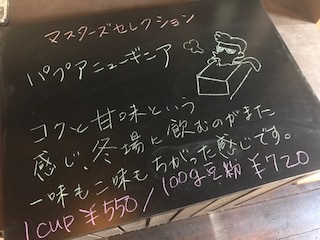 マスターズセレクション
パプアニューギニア
コクと甘味という
感じ、冬場に飲むのがまた
一味も二味もちがった感じです。
1CUP ¥550/100g豆粉 ¥720